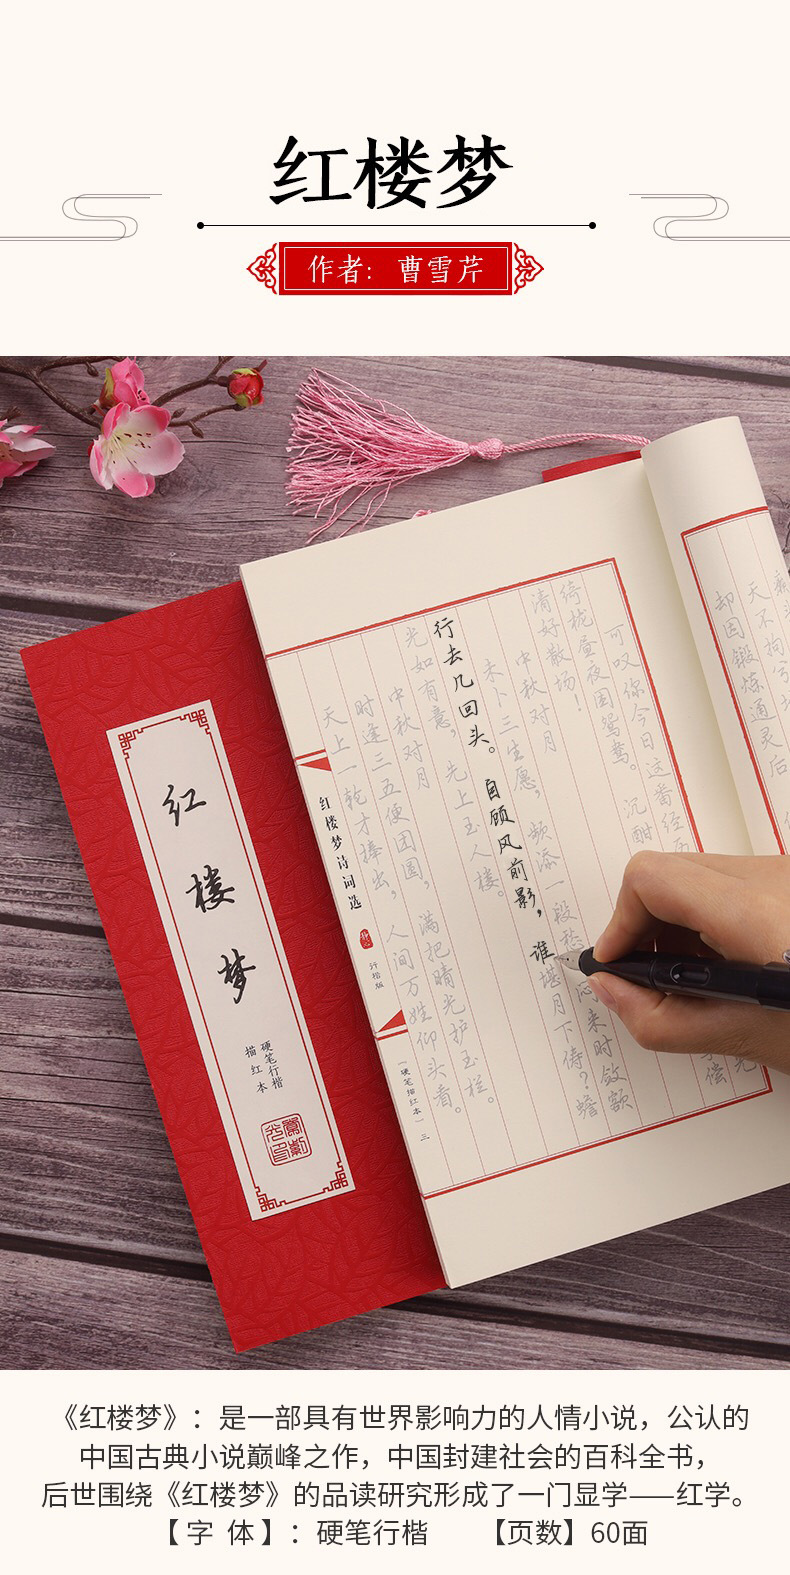 红楼梦
作者：曹雪芹
却因锻炼通灵后
可叹你今日这番经历
绮栊昼夜困鸳鸯。沉酣
清好散场！
中秋对月
未卜三生愿，频添一段愁。闷来时敛额
行去几回头。自顾风前影，谁堪月下俦？蟾
光如有意，先上玉人楼。
中秋对月
时逢三五便团圆，满把晴光护玉栏。
天上一轮才捧出，人间万姓仰头看。
红楼梦诗词选
行楷版
（硬笔描红本）
三
红楼梦
硬笔行楷
描红本
《红楼梦》：是一部具有世界影响力的人情小说，公认的
中国古典小说巅峰之作，中国封建社会的百科全书，
后世围绕《红楼梦》的品读研究形成了一门显学——红学。
【字 体】：硬笔行楷 【页数】60面